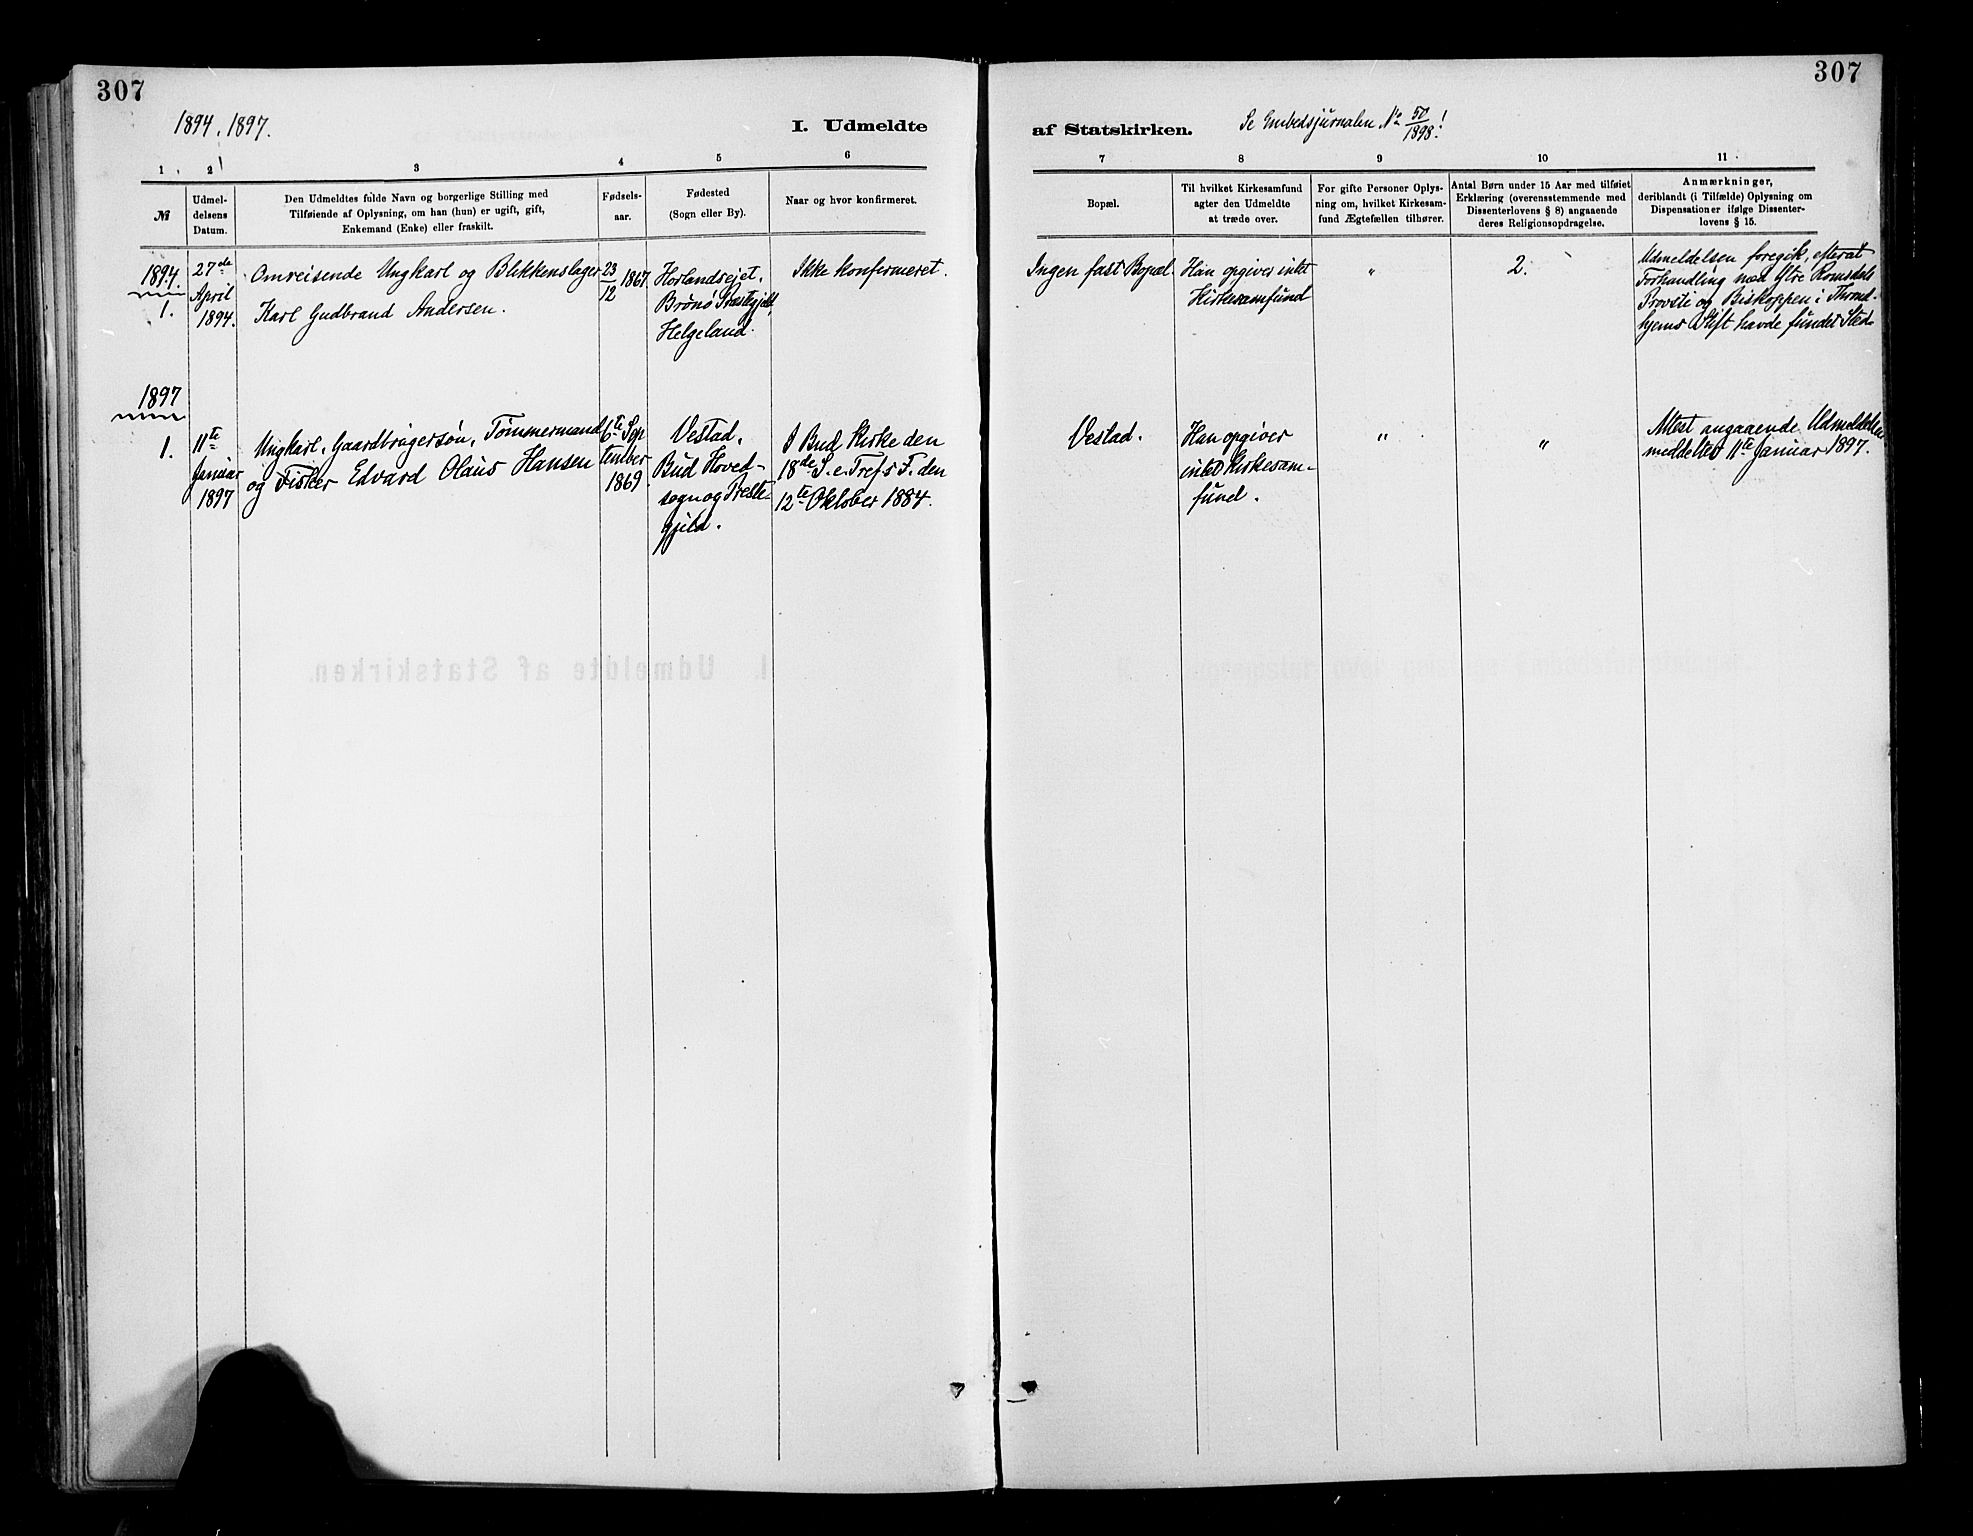 307
307
1894, 1897.
I. Udmeldte
af Statskirken.
Se Embedsjurnalen No 50/1898!
1
2
3
4
5
6
7
8
9
10
11
№
Udmel-
delsens
Datum.
Den Udmeldtes fulde Navn og borgerlige Stilling med
Tilføiende af Oplysning, om han (hun) er ugift, gift,
Enkemand (Enke) eller fraskilt.
Fødsels-
aar.
Fødested
(Sogn eller By).
Naar og hvor konfirmeret.
Bopæl.
Til hvilket Kirkesamfund
agter den Udmeldte
at træde over.
For gifte Personer Oplys-
ning om, hvilket Kirkesam-
fund Ægtefællen tilhører.
Antal Børn under 15 Aar med tilføiet
Erklæring (overensstemmende med
Dissenterlovens § 8) angaaende
deres Religionsopdragelse.
Anmærkninger,
deriblandt (i Tilfælde) Oplysning om
Dispensationer ifølge Dissenter-
lovens § 15.
1894.
1.
27de
April
1894.
Omreisende Ungkarl og Blikkenslager
Karl Gudbrand Andersen.
23/12 1867
Horlandsejet,
Brønø Præstegjeld,
Helgeland.
Ikke konfermeret.
Ingen fast Bopæl.
Han opgiver intet
Kirkesamfund
"
2.
Udmeldelsen foregik, efterat
Forhandling med Ytre Romsdals
Provsti og Biskoppen i Thrond-
hjems Stift havde fundet Sted.
1897
1.
11te
Januar
1897
Ungkarl, Gaardbrugersøn, Tømmermand
og Fisker Edvard Olaus Hansen
6te Sep
tember
1869
Vestad,
Bud Hoved-
sogn og Preste-
gjeld.
I Bud Kirke den
18de S. e. Tref's F. den
12te Oktober 1884.
Vestad.
Han opgiver
intet Kirkesam-
fund.
"
"
Attest angaaende Udmeldelsen
meddeltes 11te Januar 1897.
I. Udmeldte af Statskirken.